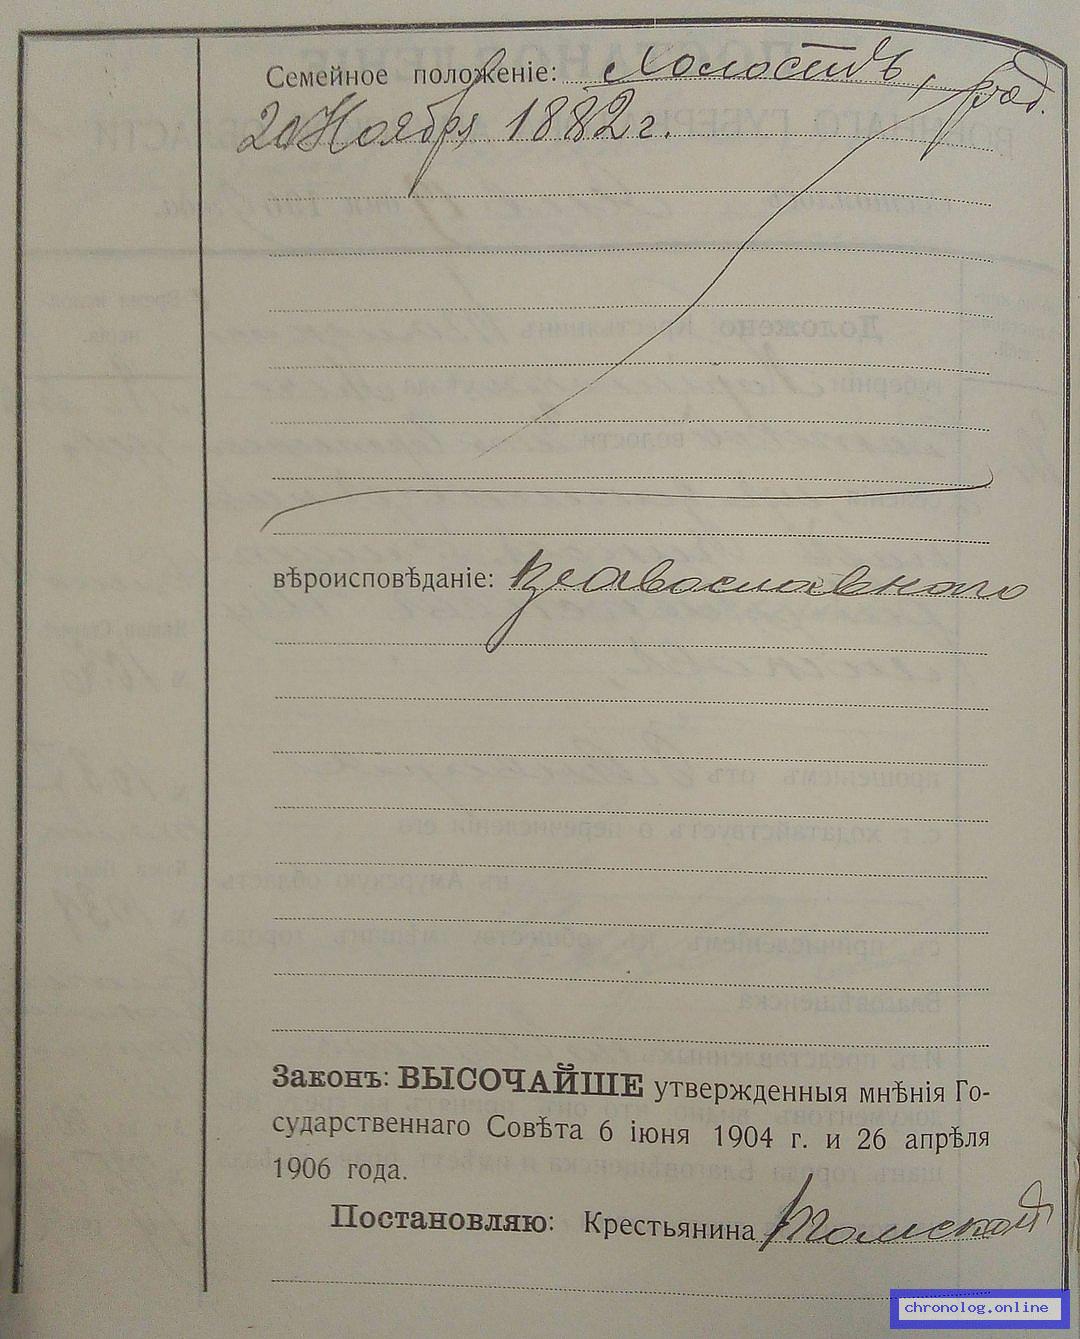 Семейное положеніе: Холостъ, род.
20 Ноября 1882 г.
вѣроисповѣданіе: Православного
Законъ: ВЫСОЧАЙШЕ утвержденныя мнѣнія Го-
сударственнаго Совѣта 6 іюня 1904 г. и 26 апрѣля
1906 года.
Постановляю: Крестьянина Томской
chronolog.online